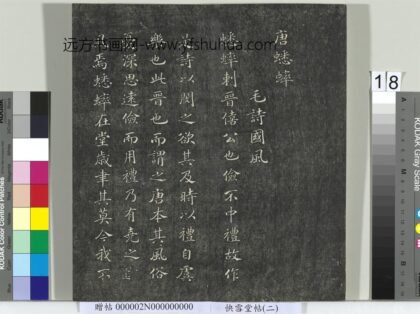 远方书画网-www.yfshuhua.com
唐蟋蟀
毛詩國風
蟋蟀刺晉僖公也儉不中禮故作
是詩以閔之欲其及時以禮自虞
樂也此晉也而謂之唐本其風俗
深思遠儉而用禮乃有堯之
焉蟋蟀在堂歲聿其莫今我不
18
KODAK Color Control Patches
KODAK Gray Scale
A
M
贈帖 000002N000000000 快雪堂帖(二)